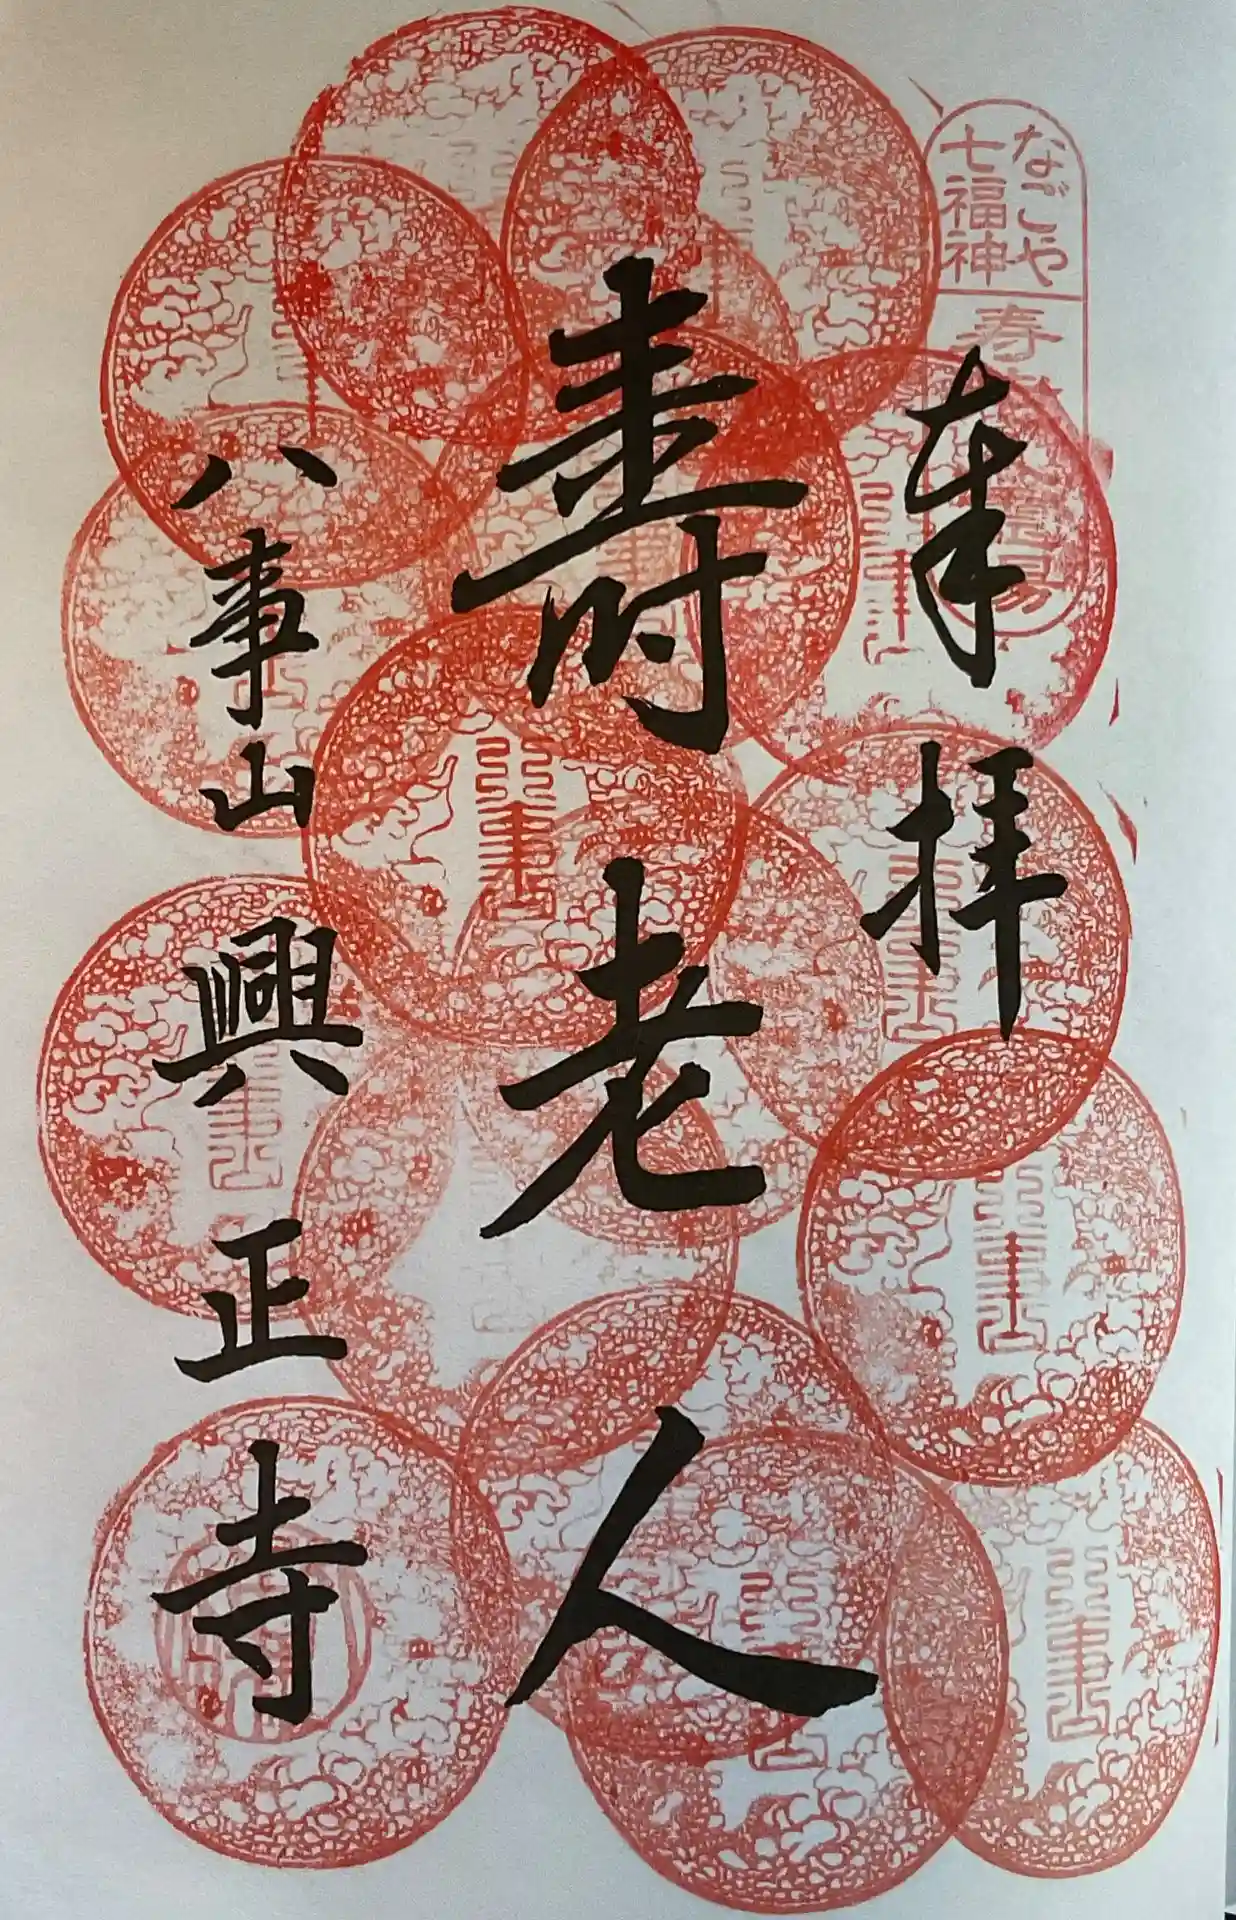 なごや
七福神
寿
奉拝
寿老人
八事山
興正寺